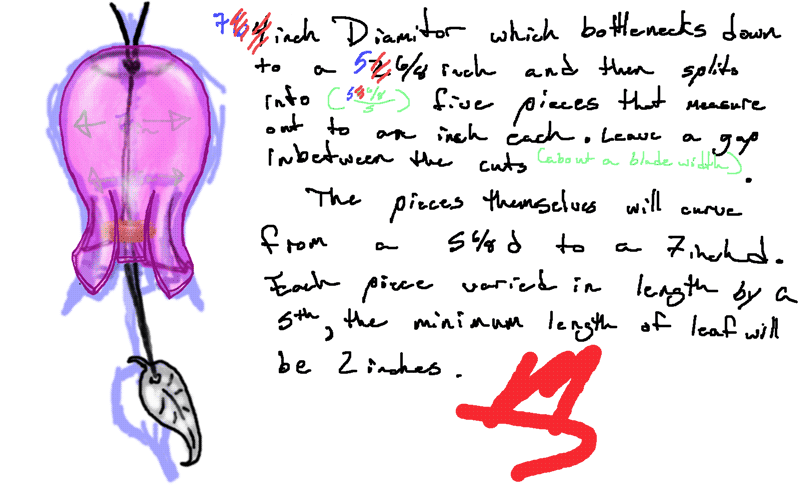 7 inch Diamitor which bottlenecks down
to a 5 6/8 inch and then splits
into (5 6/8 / 5) five pieces that measure
out to an inch each. Leave a gap
inbetween the cuts (about a blade width).
The pieces themselves will curve
from a 5 6/8 d to a 7 inch d.
Each piece varied in length by a
5th, the minimum length of leaf will
be 2 inches.